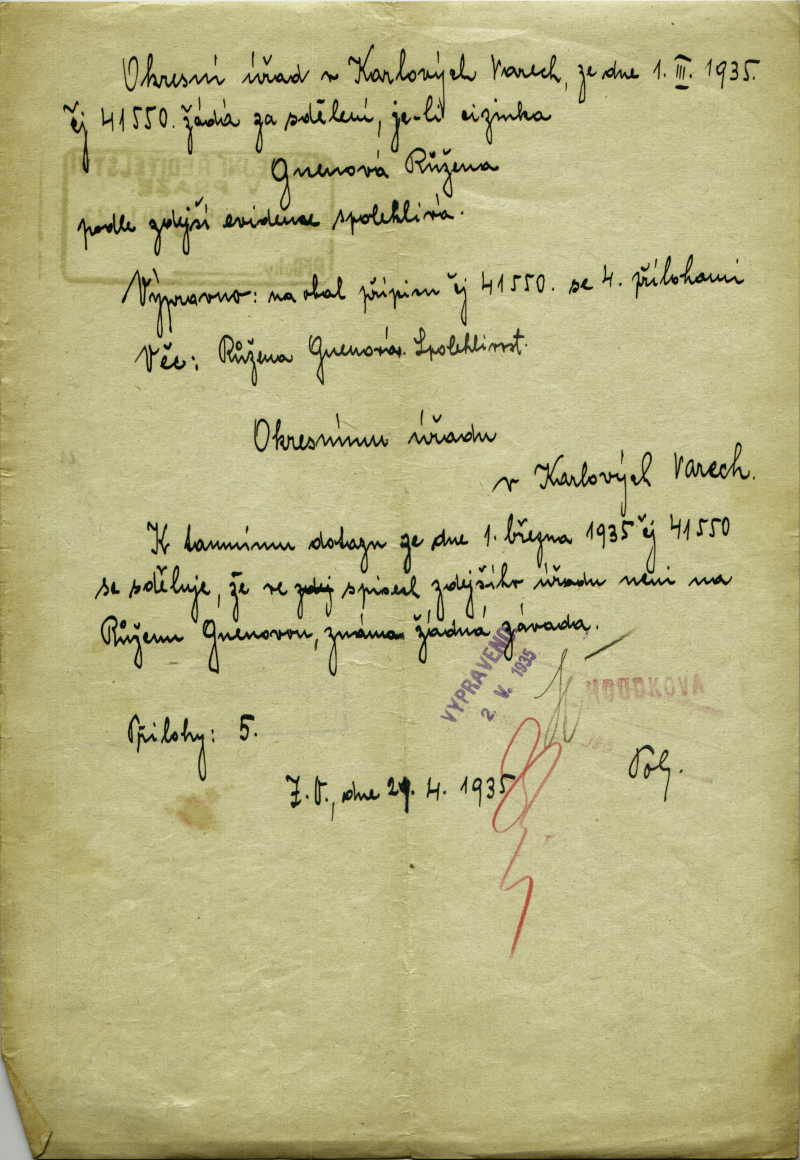 Okresní úřad v Karlových Varech, ze dne 1. III. 1935.
čj 41550. žádá za sdělení, je-li cizinka
Gnenová Růžena
podle zdejší evidence spolehlivá.
Výpravno: na obal přípisu čj 41550. se 4. přílohami
Věc: Růžena Gnenová. Spolehlivost.
Okresnímu úřadu
v Karlových Varech.
K tamnímu dotazu ze dne 1. března 1935 čj 41550
se sděluje, že ve zdej spisech zdejšího úřadu není na
Růženu Gnenovou, známa žádná závada.
VYPRAVENO
2. V. 1935
Přílohy: 5.
Z.V., dne 29. 4. 1935